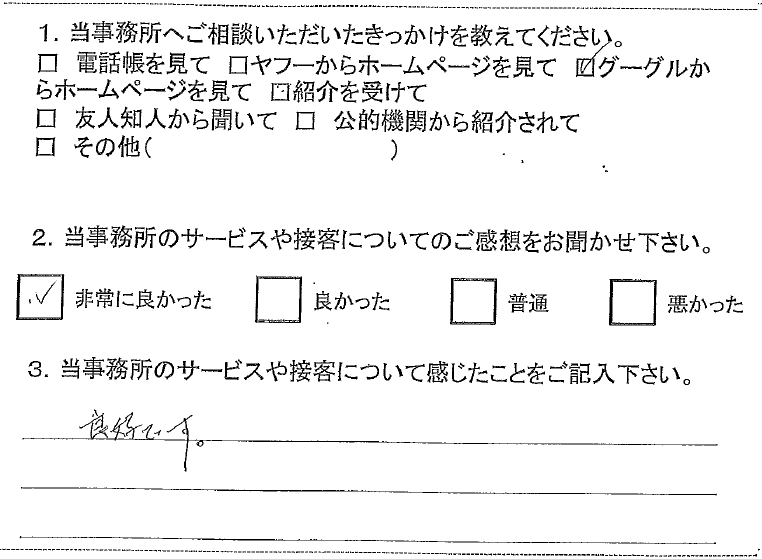 1. 当事務所へご相談いただいたきっかけを教えてください。
□ 電話帳を見て □ヤフーからホームページを見て ☑グーグルか
らホームページを見て □紹介を受けて
□ 友人知人から聞いて □ 公的機関から紹介されて
□ その他( )
2. 当事務所のサービスや接客についてのご感想をお聞かせ下さい。
☑ 非常に良かった □ 良かった □ 普通 □ 悪かった
3. 当事務所のサービスや接客について感じたことをご記入下さい。
良好です。